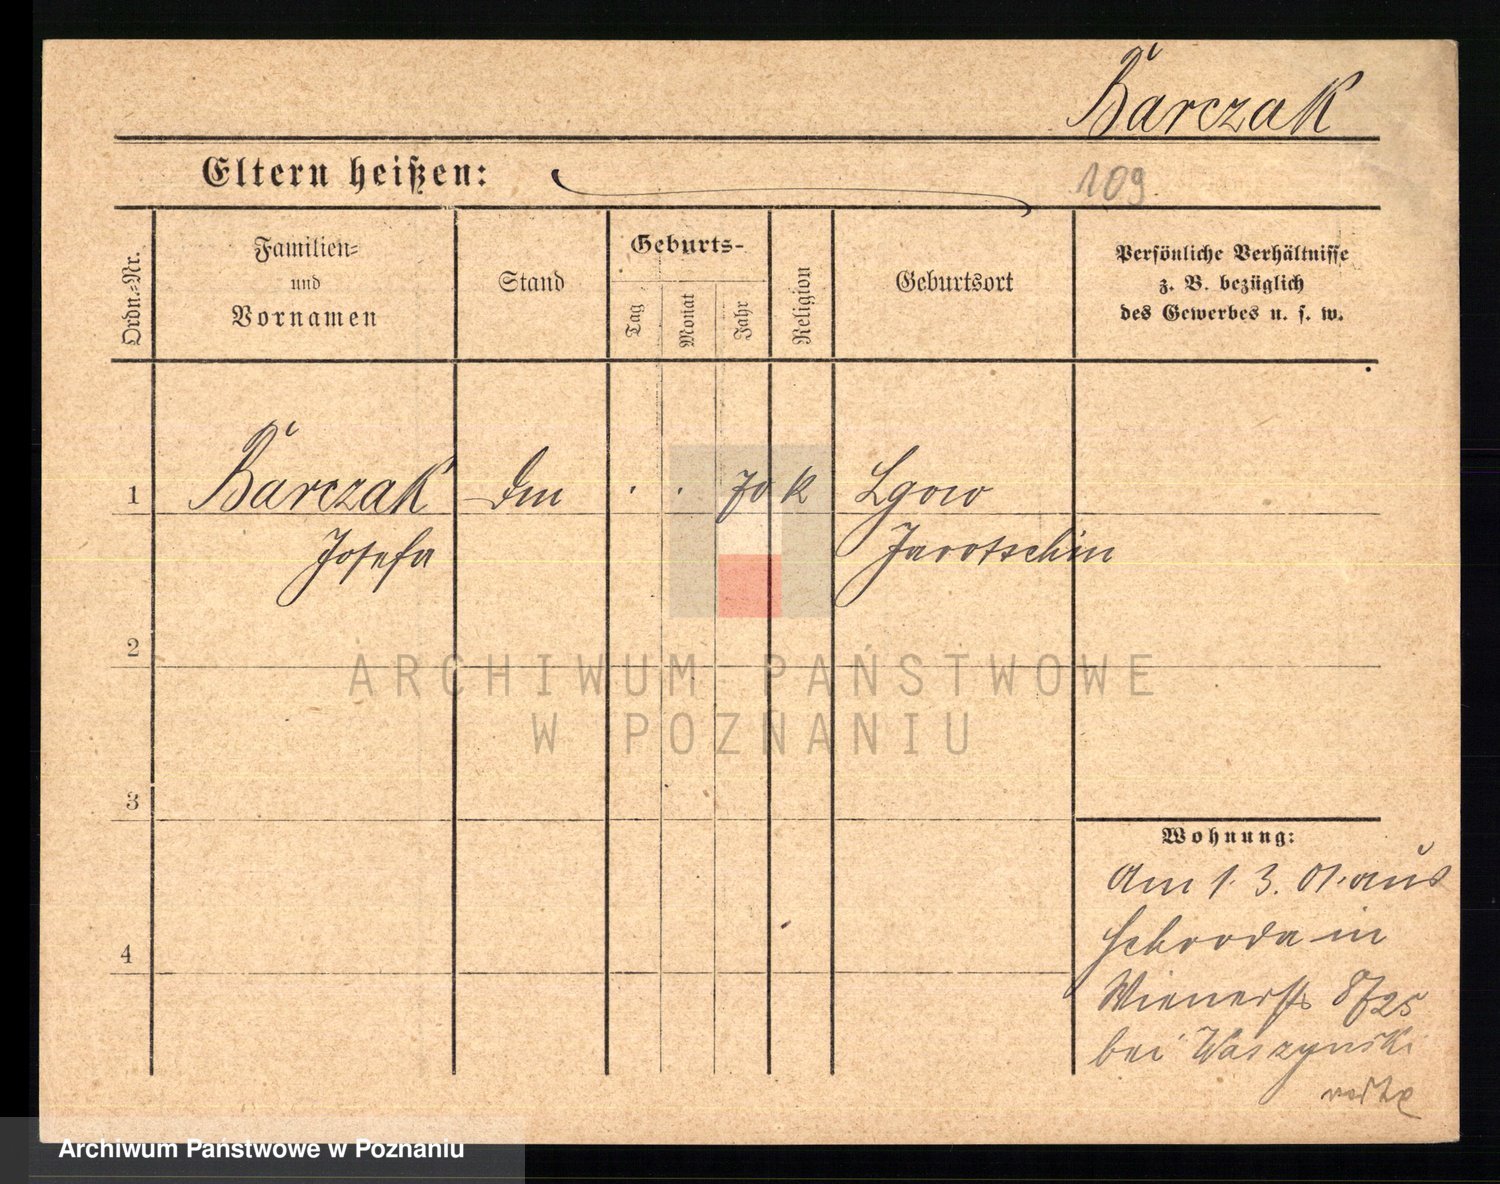 Barczak
Eltern heißen:
109
Ordn.-Nr.
Familien-
und
Vornamen
Stand
Geburts-
Tag
Monat
Jahr
Religion
Geburtsort
Persönliche Verhältnisse
z. B. bezüglich
des Gewerbes u. s. w.
1
Barczak
70 k Lgow
Josefa
Jarotschin
2
ARCHIWUM PAŃSTWOWE
W POZNANIU
3
Wohnung:
Am 1. 3. 01. aus
Schroda in
4
Wienerstr 8
bei Waszynski
Archiwum Państwowe w Poznaniu